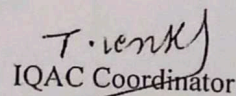 IQAC Coordinator